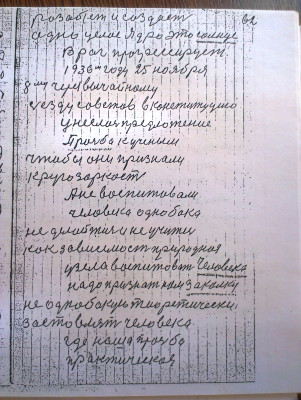 розовьет и создает 62
одно целое Ядро это солнце
Враг прогрессирует.
1936ом году 25 ноября
чрезвычайному
съезду советов в конституцию
унес предложение
Прозба к ученым
чтоби они признали
кругозоркост
А не воспитовали
человека однобока
не делоби и не учити
как зависимост природная
узела воспитоват Человека
надо признат нам Закалку
не однобокую теоретически,
заставлят человека
где наша прозба
практическая